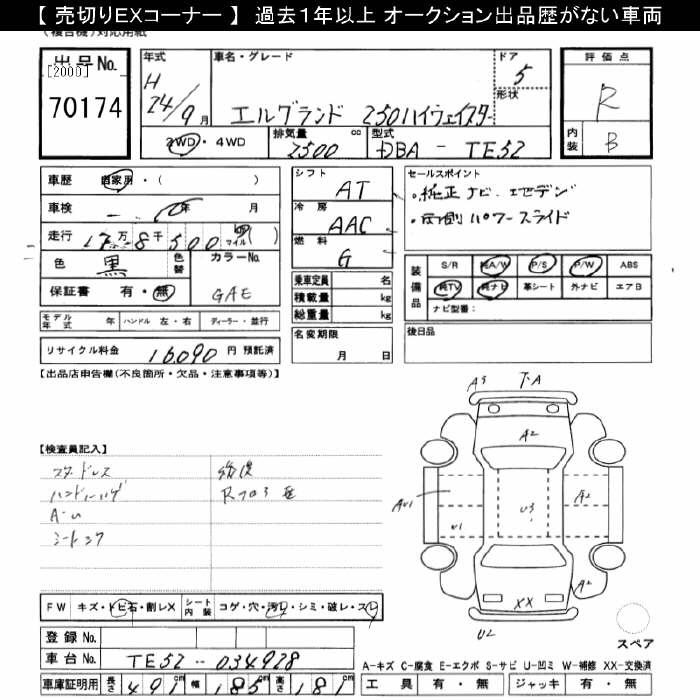 【 売切りEXコーナー 】 過去１年以上 オークション出品歴がない車両
(複合機)対応用紙
出品No.
[2000]
70174
年式
H
24/9月
車名・グレード
エルグランド 250ハイウェイスター
ドア
5
形状
評価点
R
内装
B
2WD・4WD
排気量 cc
2500
型式
DBA - TE52
車歴 自家用・( )
車検 年 月
走行 17万8千500 マイル( )
色 黒
色替
カラーNo.
GAE
保証書 有・無
モデル年式 年 ハンドル 左・右 ディーラー・並行
リサイクル料金 16090円 預託済
シフト
AT
冷房
AAC
燃料
G
乗車定員 名
積載量 kg
総重量 kg
名変期限
月 日
セールスポイント
・純正ナビ、
・両側パワースライド
装備品
S/R 純A/W P/S P/W ABS
純TV 純ナビ 革シート 外ナビ エアB
ナビ型番：
後日品
【出品店申告欄(不良箇所・欠品・注意事項等)】
【検査員記入】
スタッドレス
A-U
修復
Rフロア
A3
下A
A2
AU1
U1
U3
A2
XX
A2
U2
スペア
FW キズ・トビ石・割レX シート内装 コゲ・穴・汚レ・シミ・破レ・スレ
登録 No.
車台 No. TE52--034928
車庫証明用 長さ 491 幅 185 高さ 181
A-キズ C-腐食 E-エクボ S-サビ U-凹ミ W-補修 XX-交換済
工具 有・無 ジャッキ 有・無